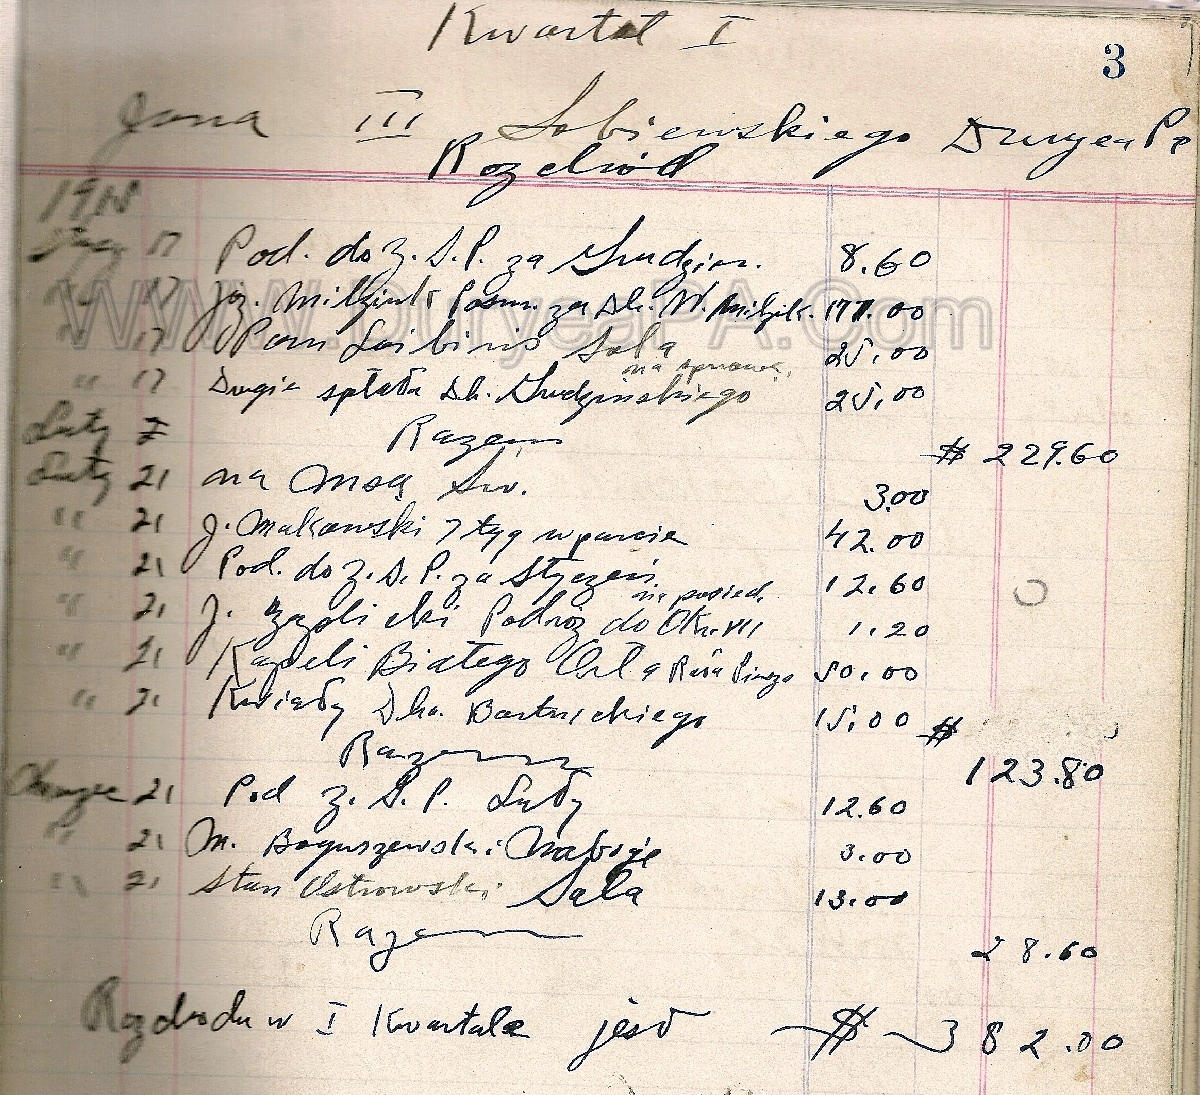 Kwartał I
3
Jana III Sobiewskiego Duryea Pa
Rozchód
1918
17 Pod. do Z. S. P. za Grudzien. 8.60
" 17 Józ. Milziuk Posm. za Dh. W. Milzik. 171.00
" 17 Pan sala 25.00
na sprawe.
" 17 Drugie spłata Dh. Grudzinskiego 25.00
Luty 7 Razem $ 229.60
Luty 21 na Mszą Św. 3.00
" 21 J. Makowski 7 tyg wparcie 42.00
" 21 Pod. do Z. S. P. za Styczeń 12.60
na posied.
" 21 J. Podróz do Okr. VII 1.20
" 21 Kapeli Białego Orła 50.00
" 21 Kwiaty Dha. Bartnickiego 15.00 $
Razem 123.80
21 Pod Z. S. P. Luty 12.60
" 21 M. Boguszewski Naboje 3.00
" 21 Stan Ostrowski Sala 13.00
Razem 28.60
Rozchodu w I Kwartale jest $ 382.00
www.DuryeaPA.Com